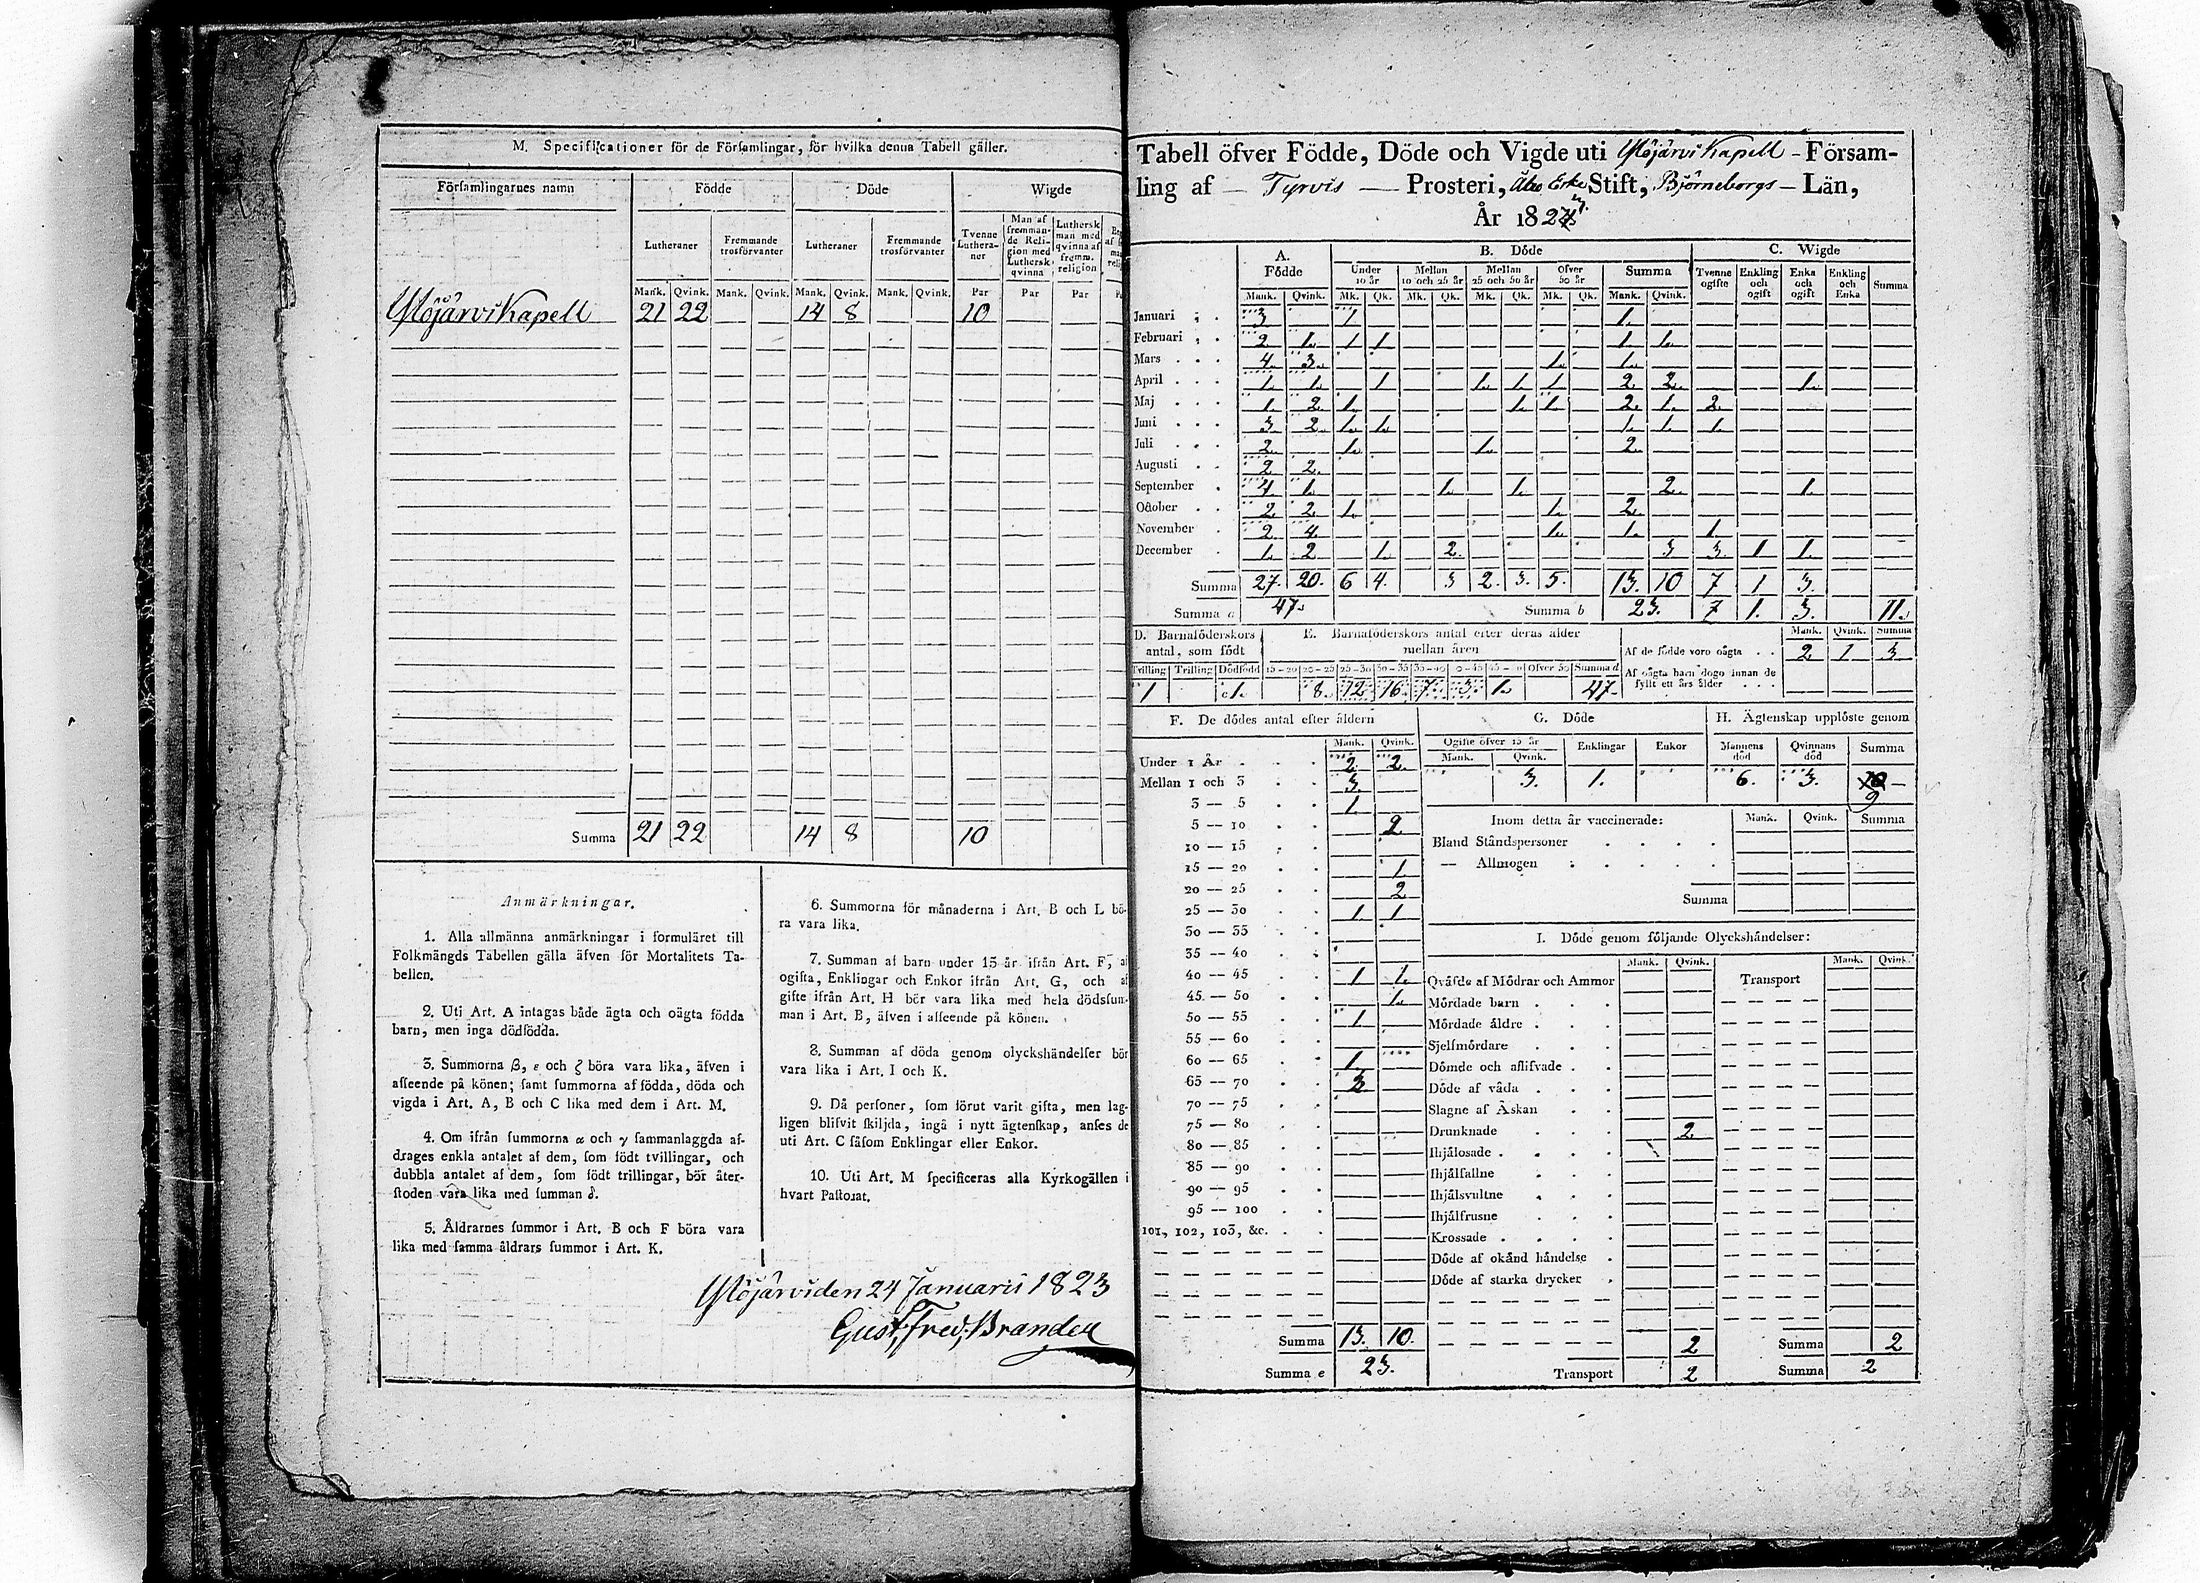 M. Specificationer för de Församlingar, för hvilka denna Tabell gäller.
Församlingarnes namn Födde Döde Wigde
Lutheraner Fremmande trosförvanter Lutheraner Fremmande trosförvanter Tvenne Lutheraner Man af fremmande Religion med Luthersk qvinna Luthersk man med qvinna af fremm. religion
Mank. Qvink. Mank. Qvink. Mank. Qvink. Mank. Qvink. Par Par Par
Ylöjärvi Kapell 21 22 14 8 10
Summa 21 22 14 8 10
Anmärkningar.
1. Alla allmänna anmärkningar i formuläret till
Folkmängds Tabellen gälla äfven för Mortalitets Ta-
bellen.
2. Uti Art. A intagas både ägta och oägta födda
barn, men inga dödfödda.
3. Summorna β, ε och ζ böra vara lika, äfven i
afseende på könen; samt summorna af födda, döda och
vigda i Art. A, B och C lika med dem i Art. M.
4. Om ifrån summorna α och γ sammanlaggda af-
drages enkla antalet af dem, som födt tvillingar, och
dubbla antalet af dem, som födt trillingar, bör åter-
stoden vara lika med summan δ.
5. Åldrarnes summor i Art. B och F böra vara
lika med samma åldrars summor i Art. K.
6. Summorna för månaderna i Art. B och L bö-
ra vara lika.
7. Summan af barn under 15 år ifrån Art. F, af
ogifta, Enklingar och Enkor ifrån Art. G, och af
gifte ifrån Art. H bör vara lika med hela dödssum-
man i Art. B, äfven i afseende på könen.
8. Summan af döda genom olyckshändelser bör
vara lika i Art. I och K.
9. Då personer, som förut varit gifta, men lag-
ligen blifvit skiljda, ingå i nytt ägtenskap, anses de
uti Art. C såsom Enklingar eller Enkor.
10. Uti Art. M specificeras alla Kyrkogällen i
hvart Pastorat.
Ylöjärvi den 24 Januarii 1823
Gust. Fred. Brander
Tabell öfver Födde, Döde och Vigde uti Ylöjärvi Kapell – Försam-
ling af — Tyrvis — Prosteri, Åbo Erke Stift, Björneborgs – Län,
År 182
A. Födde B. Döde C. Wigde
Under 10 år Mellan 10 och 25 år Mellan 25 och 50 år Öfver 50 år Summa Tvenne ogifte Enkling och ogift Enka och ogift Enkling och Enka Summa
Mank. Qvink. Mk. Qk. Mk. Qk. Mk. Qk. Mk. Qk. Mank. Qvink.
Januari 3 1 1
Februari 2 1 1 1 1 1
Mars 4 3 1 1
April 1 1 1 1 1 1 2 2 1
Maj 1 2 1 1 1 2 1 2
Juni 3 2 1 1 1 1 1
Juli 2 1 1 2
Augusti 2 2
September 4 1 1 1 2 1
October 2 2 1 1 2
November 2 4 1 1 1
December 1 2 1 2 3 3 1 1
Summa 27 20 6 4 3 2 3 5 13 10 7 1 3
Summa a 47 Summa b 23 7 1 3 11
D. Barnaföderskors antal, som födt
Tvilling Trilling Dödfödd
1 c1
E. Barnaföderskors antal efter deras ålder mellan åren
15–20 20–25 25–30 30–35 35–40 40–45 45–50 Öfver 50 Summa d
8 12 16 7 3 1 47
Mank. Qvink. Summa
Af de födde voro oägta 2 1 3
Af oägta barn dogo innan de fyllt ett års ålder
F. De dödes antal efter åldern
Mank. Qvink.
Under 1 År 2 2
Mellan 1 och 3 3
3 — 5 1
5 — 10 2
10 — 15
15 — 20 1
20 — 25 2
25 — 30 1 1
30 — 35
35 — 40
40 — 45 1 1
45 — 50 1
50 — 55 1
55 — 60
60 — 65 1
65 — 70 3
70 — 75
75 — 80
80 — 85
85 — 90
90 — 95
95 — 100
101, 102, 103, &c.
Summa 13 10
Summa e 23
G. Döde
Ogifte öfver 15 år Enklingar Enkor
Mank. Qvink.
3 1
H. Ägtenskap upplöste genom
Mannens död Qvinnans död Summa
6 3 10
9
Inom detta år vaccinerade: Mank. Qvink. Summa
Bland Ståndspersoner
— Allmogen
Summa
I. Döde genom följande Olyckshändelser:
Mank. Qvink. Transport Mank. Qvink.
Qväfde af Mödrar och Ammor
Mördade barn
Mördade äldre
Sjelfmördare
Dömde och aflifvade
Döde af våda
Slagne af Åskan
Drunknade 2
Ihjälosade
Ihjälfallne
Ihjälsvultne
Ihjälfrusne
Krossade
Döde af okänd händelse
Döde af starka drycker
2 Summa 2
Transport 2 Summa 2